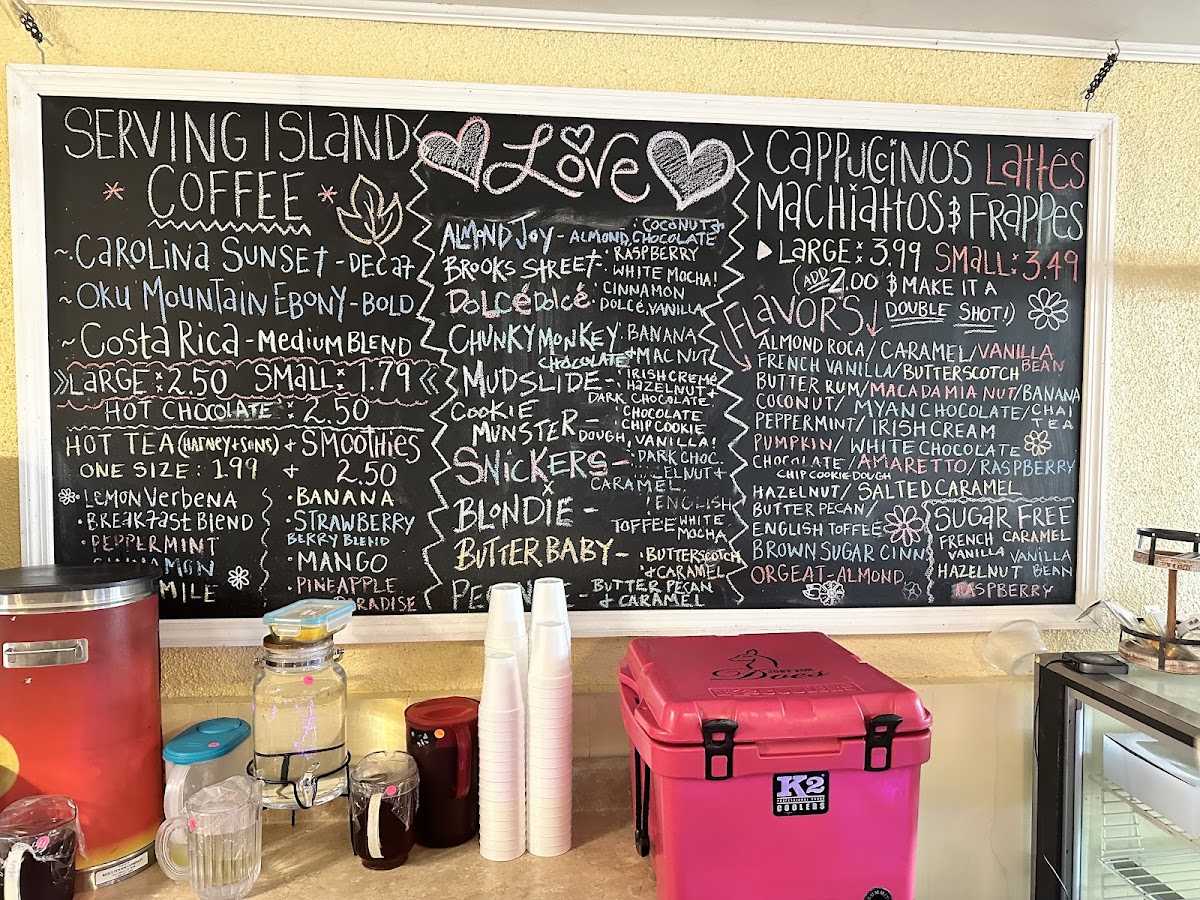 SERVING ISLAND
COFFEE
~CAROLINA SUNSET-DECAF
~OKU MOUNTAIN EBONY-BOLD
~COSTA RICA-MEDIUM BLEND
LARGE: 2.50 SMALL: 1.79
HOT CHOCOLATE: 2.50
HOT TEA (HARNEY+SONS) + SMOOTHIES
ONE SIZE: 1.99 + 2.50
•LEMON VERBENA
•BREAKFAST BLEND
•PEPPERMINT
CINNAMON
MILE
•BANANA
•STRAWBERRY
BERRY BLEND
•MANGO
PINEAPPLE
PARADISE
LOVE
ALMOND JOY- ALMOND, COCONUT+
CHOCOLATE
BROOKS STREET- RASPBERRY
WHITE MOCHA!
DOLCÉ DOLCÉ: CINNAMON
DOLCÉ, VANILLA
CHUNKY MONKEY: BANANA
CHOCOLATE+MAC NUT
MUDSLIDE-: IRISH CREME
HAZELNUT+
DARK CHOCOLATE
COOKIE
MUNSTER-: CHOCOLATE
CHIP COOKIE
DOUGH, VANILLA!
SNICKERS-: DARK CHOC.
CARAMEL,
BLONDIE- ENGLISH
TOFFEE WHITE
MOCHA
BUTTERBABY-: BUTTERSCOTCH
+CARAMEL
BUTTER PECAN
& CARAMEL
CAPPUCCINOS LATTÉS
MACHIATTOS $ FRAPPES
LARGE: 3.99 SMALL: 3.49
(ADD 2.00 $ MAKE IT A
DOUBLE SHOT!)
FLAVORS
ALMOND ROCA/ CARAMEL/VANILLA
BEAN
FRENCH VANILLA/BUTTERSCOTCH
BUTTER RUM/MACADAMIA NUT/BANANA
COCONUT/ MYAN CHOCOLATE/CHAI
TEA
PEPPERMINT/IRISH CREAM
PUMPKIN/ WHITE CHOCOLATE
CHOCOLATE/AMARETTO/RASPBERRY
CHIP COOKIE DOUGH
HAZELNUT/ SALTED CARAMEL
BUTTER PECAN/
ENGLISH TOFFEE
BROWN SUGAR CINN
ORGEAT-ALMOND
SUGAR FREE
FRENCH CARAMEL
VANILLA VANILLA
HAZELNUT BEAN
RASPBERRY
JUST FOR
Does
K2
COOLERS